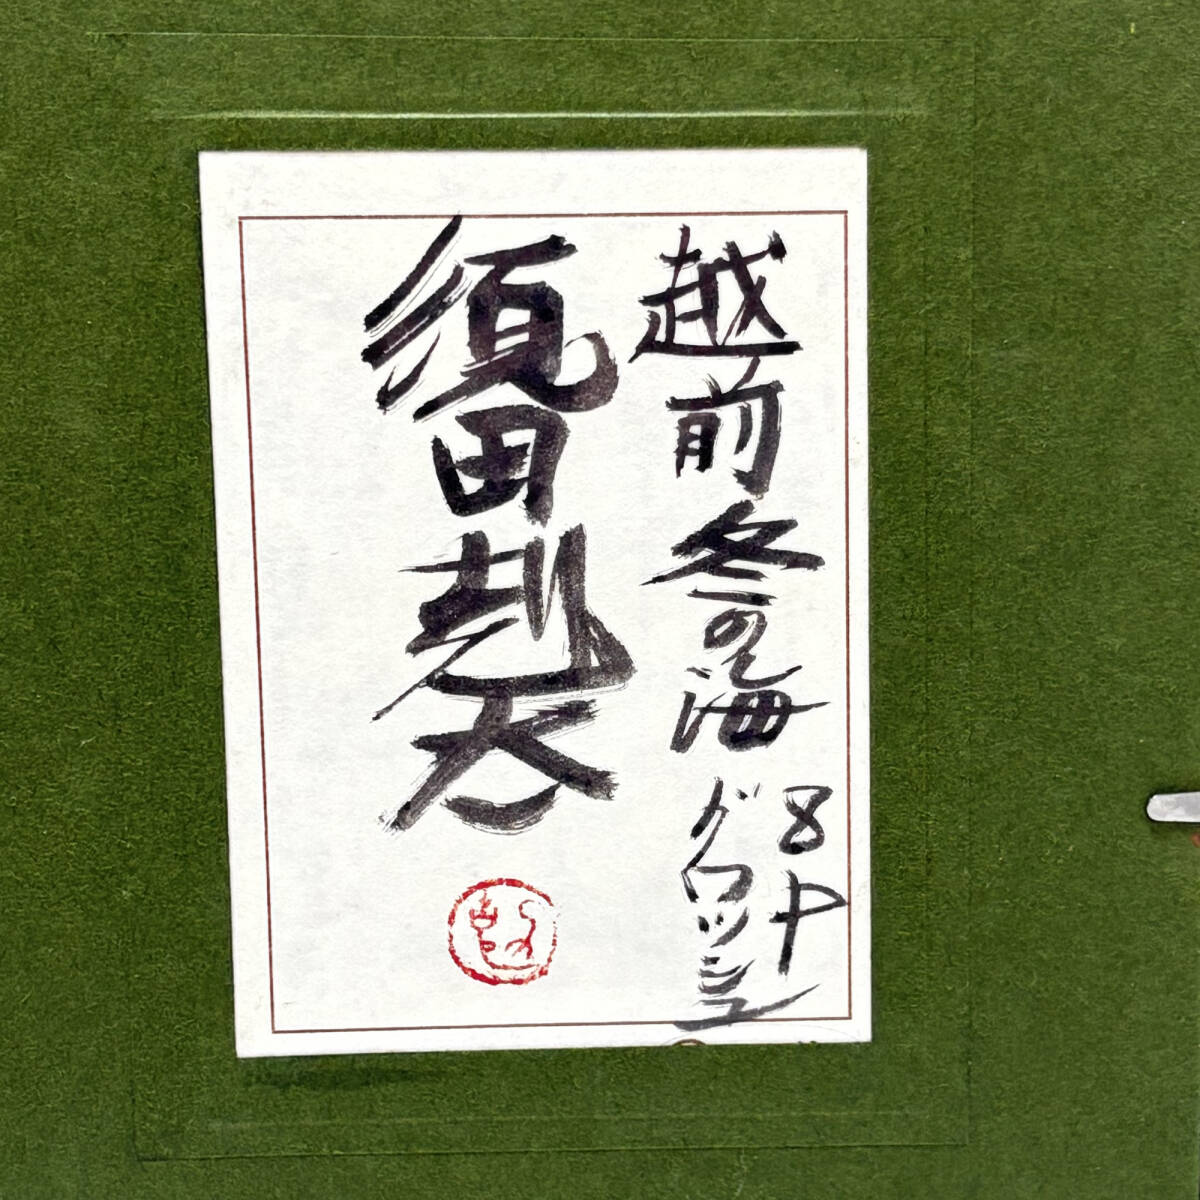 越前冬の海
8P
グワッシュ
須田剋太